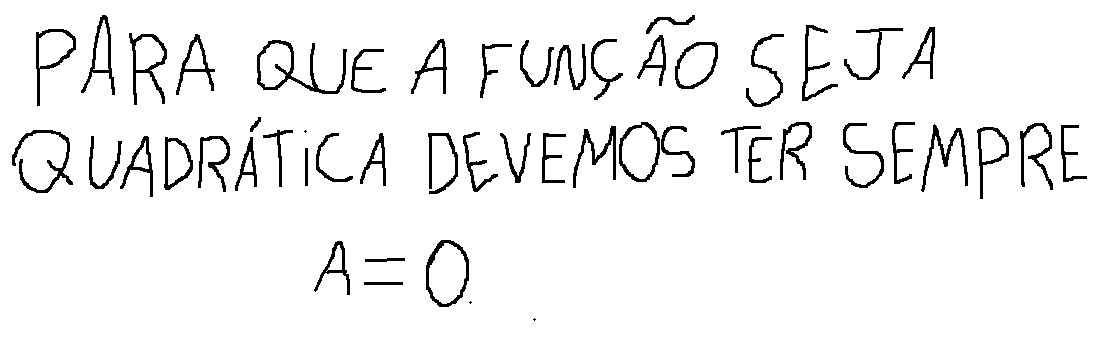 PARA QUE A FUNÇÃO SEJA
QUADRÁTICA DEVEMOS TER SEMPRE
A=0.